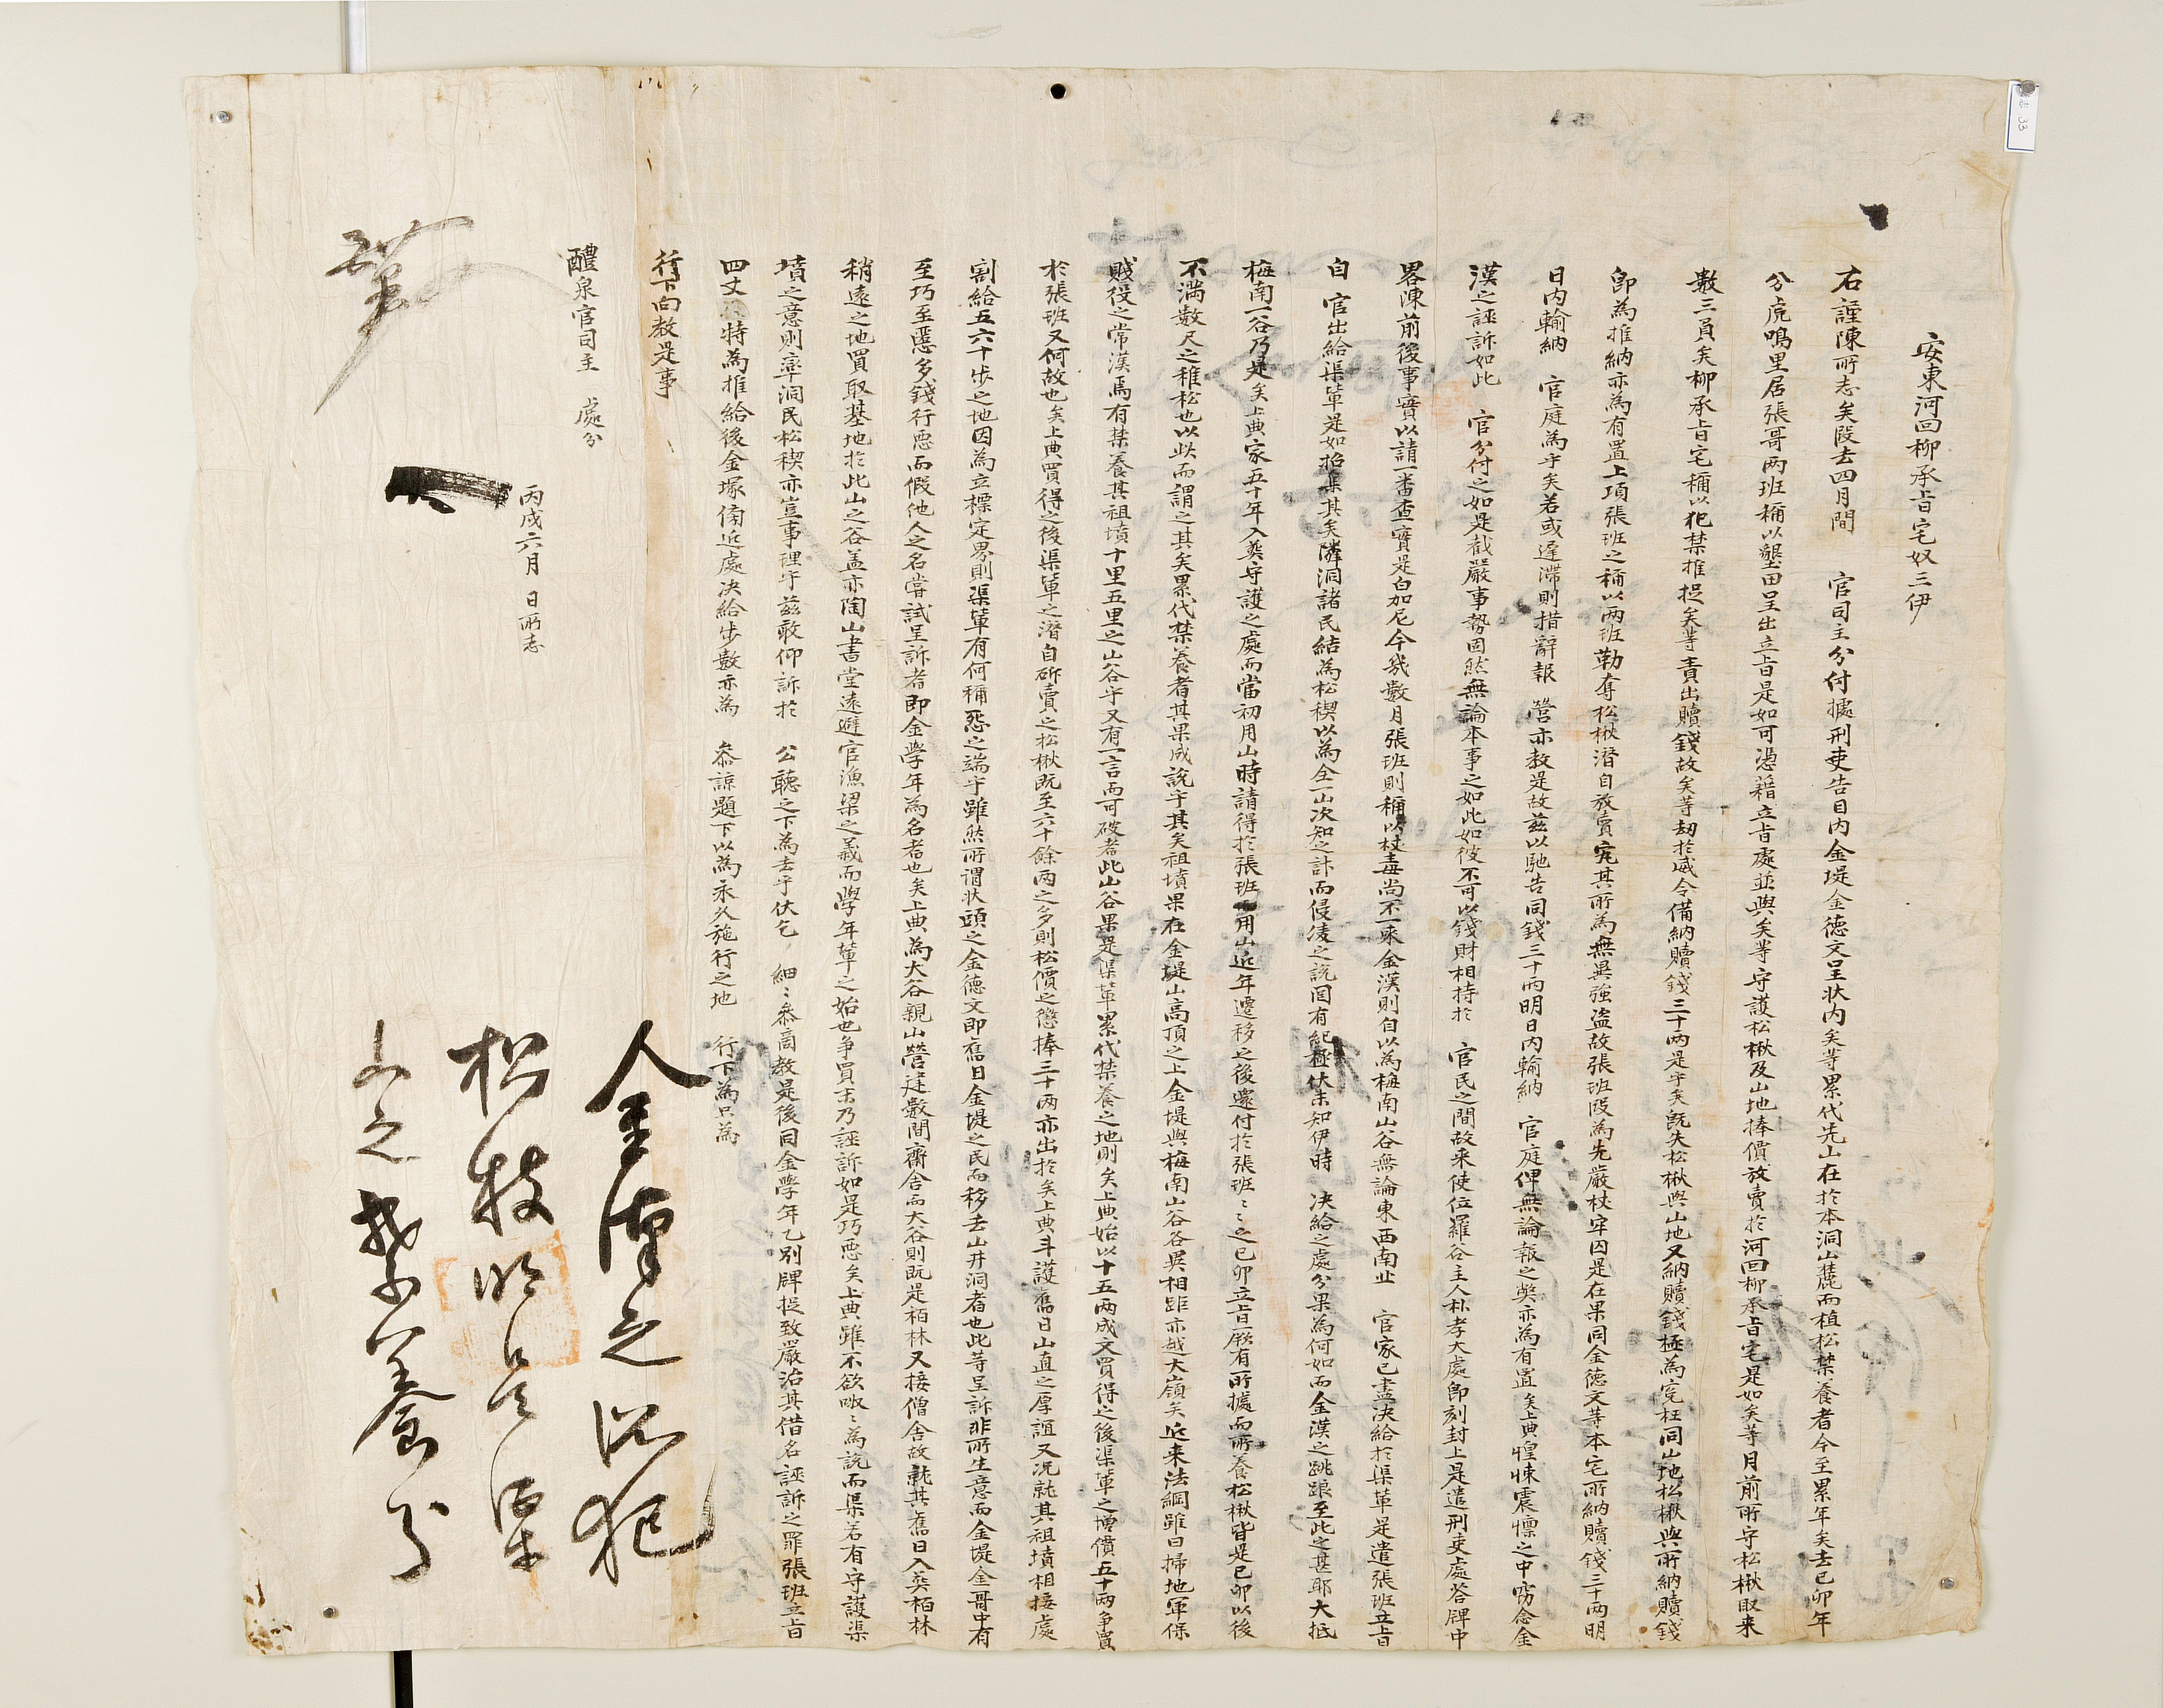 安東河回柳承旨宅奴三伊
右謹陳所志矣段去四月間 官司主分付據刑吏告目內金堤金德文呈狀內矣等累代先山在於本洞山麓而植松禁養者今至累年矣去己卯年
分虎鳴里居張哥兩班稱以墾田呈出立旨是如可憑藉立旨處並與矣等守護松楸及山地捧價放賣於河回柳承旨宅是如矣等月前所守松楸取來
數三員矣柳承旨宅稱以犯禁推捉矣等責出贖錢故矣等劫於威令備納贖錢三十兩是乎矣旣失松楸與山地又納贖錢極爲冤枉同山地松楸與所納贖錢
卽爲推納亦爲有置上項張班之稱以兩班勒奪松楸潛自放賣究其所爲無異強盜故張班段爲先嚴杖牢囚是在果同金德文等本宅所納贖錢三十兩明
日內輸納 官庭爲乎矣若或遲滯則措辭報 營亦教是故玆以馳告同錢三十兩明日內輸納 官庭俾無論報之弊亦爲有置矣上典惶悚震慄之中竊念金
漢之誣訴如此 官分付之如是截嚴事勢固然無論本事之如此如彼不可以錢財相持於 官民之間故來使位羅谷主人朴孝大處卽刻封上是遣刑吏處答牌中
畧陳前後事實以請一番查實是白加尼今幾數月張班則稱以杖毒尚不一來金漢則自以爲梅南山谷無論東西南北 官家已盡決給於渠輩是遣張班立旨
自 官出給渠輩是如招集其矣隣洞諸民結爲松禊以爲全一山次知之計而侵凌之說罔有紀極伏未知伊時 決給之處分果爲何如而金漢之跳踉至此之甚耶大抵
梅南一谷乃是矣上典家五十年入葬守護之處而當初用山時請得於張班用山近年遷移之後還付於張班ミ之己卯立旨一欵有所據而所養松楸皆是己卯以後
不滿數尺之稚松也以此而謂之其矣累代禁養者其果成說乎其矣祖墳果在金堤山高頂之上金堤與梅南山谷谷異相距亦越大嶺矣近來法綱雖曰掃地軍保
賤役之常漢焉有禁養其祖墳十里五里之山谷乎又有一言而可破者此山谷果是渠輩累代禁養之地則矣上典始以十五兩成文買得之後渠輩之增價五十兩爭買
於張班又何故也矣上典買得之後渠輩之潛自斫賣之松楸旣至六十餘兩之多則松價之懲捧三十兩亦出於矣上典斗護舊日山直之厚誼又況就其祖墳相接處
割給五六十步之地因爲立標定界則渠輩有何稱怨之端乎雖然所謂狀頭之金德文卽舊日金堤之民而移去山井洞者也此等呈訴非所生意而金堤金哥中有
至巧至惡多錢行惡而假他人之名嘗試呈訴者卽金學年爲名者也矣上典爲大谷親山營建數間齋舍而大谷則旣是栢林又接僧舍故就其舊日入葬栢林
稍遠之地買取基地於此山之谷盖亦陶山書堂遠避官漁梁之義而學年輩之始也爭買末乃誣訴如是巧惡矣上典雖不欲呶ミ爲說而渠若有守護渠
墳之意則率洞民松禊亦豈事理乎玆敢仰訴於 公聽之下爲去乎伏乞 細ミ參商教是後同金學年乙別牌捉致嚴治其借名誣訴之罪張班立旨
四丈 特爲推給後金塚傍近處決給步數亦爲 參諒題下以爲永久施行之地 行下爲只爲
行下向教是事
醴泉官司主 處分
丙戌六月 日所志
金漢之沉犯
松楸
之禁養